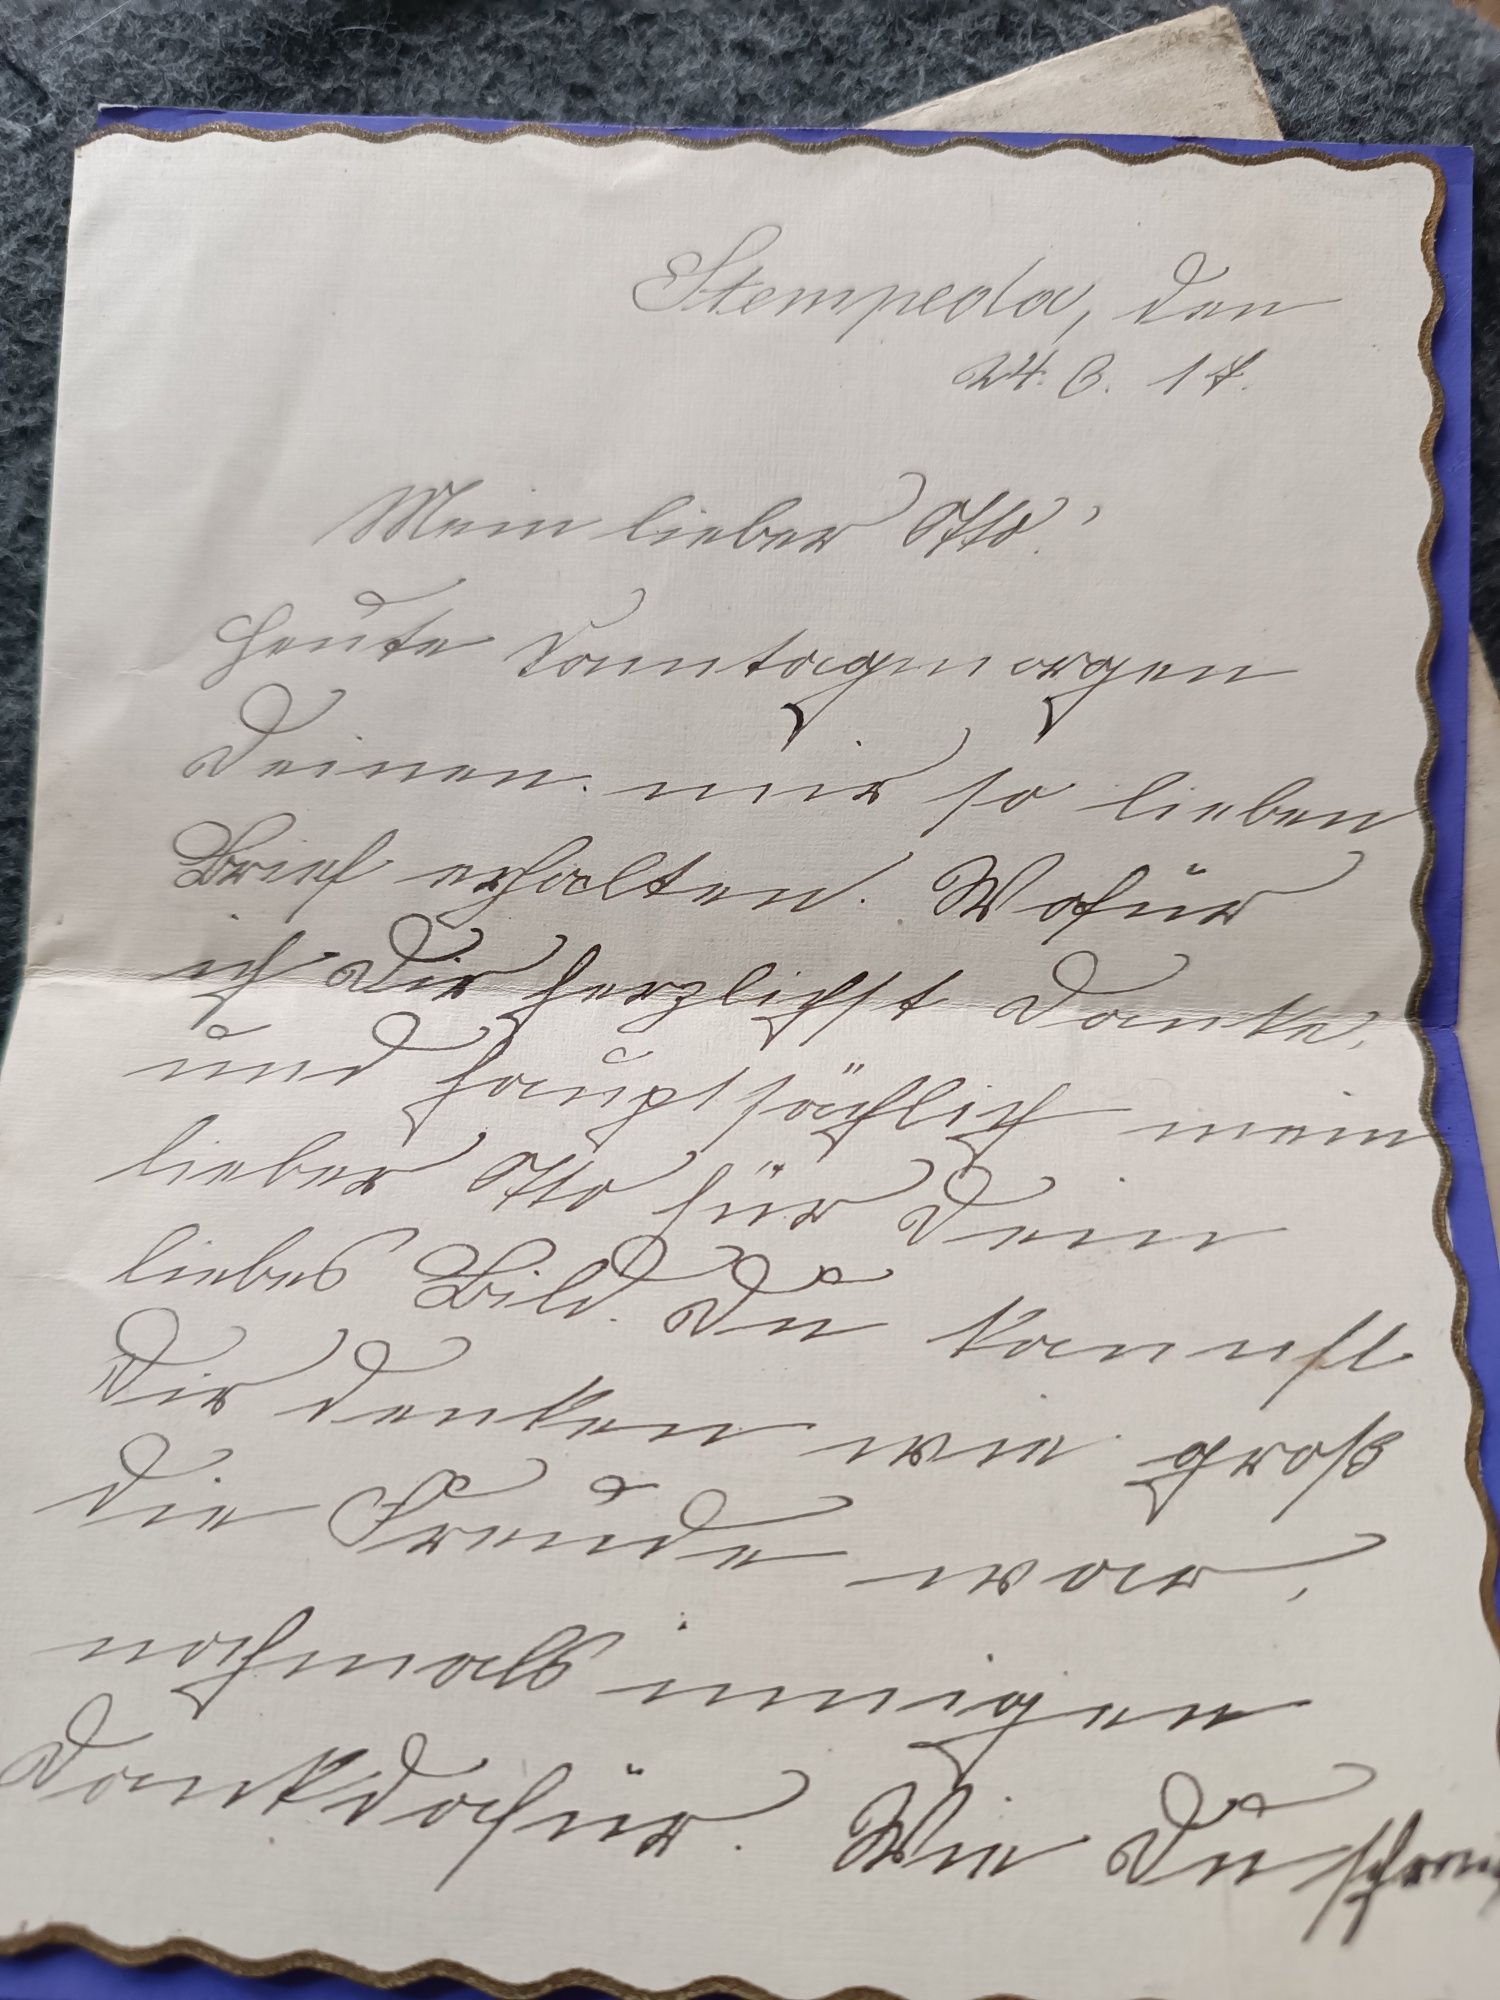 Stempeda, den
24. 6. 17.
Mein lieber Otto!
Heute Sonntagmorgen
Deinen mir so lieben
Brief erhalten. Wofür
ich Dir herzlichst danke,
und hauptsächlich mein
lieber Otto für Dein
liebes Bild. Du kannst
Dir denken wie groß
die Freude war,
nochmals innigen
Dank dafür. Wie Du